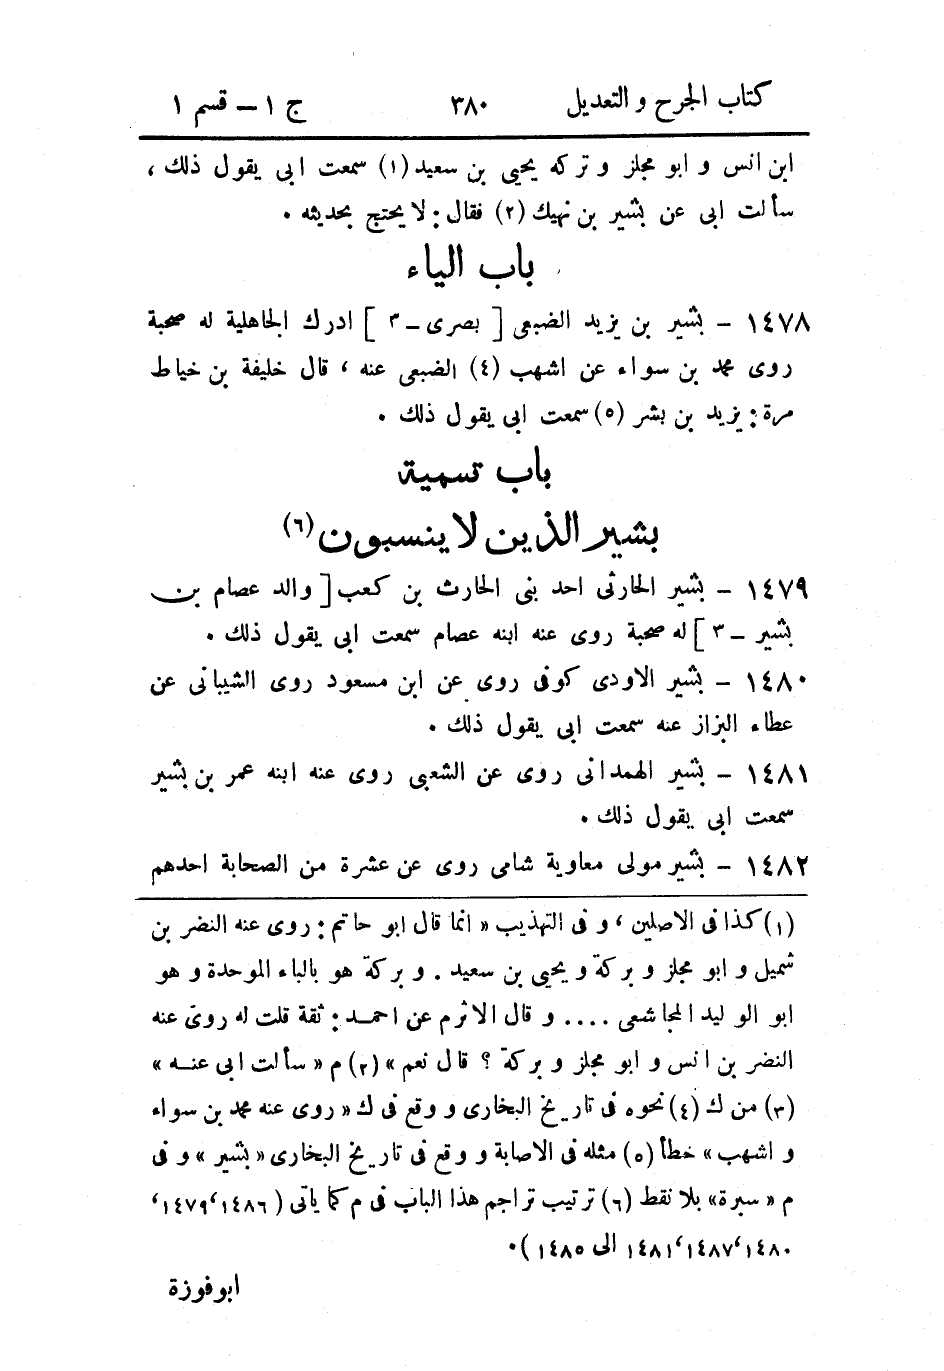 كتاب الجرح و التعديل ٣٨٠ ج ١ – قسم ١
ابن انس و ابو مجلز و تركه يحيى بن سعيد (١) سمعت ابى يقول ذلك ،
سألت ابى عن بشير بن نهيك (٢) فقال : لا يحتج بحديثه .
باب الياء
١٤٧٨ – بشير بن يزيد الضبعى [ بصرى – ٣ ] ادرك الجاهلية له صحبة
روى محمد بن سواء عن اشهب (٤) الضبعى عنه ، قال خليفة بن خياط
مرة : يزيد بن بشر (٥) سمعت ابى يقول ذلك .
باب تسمية
بشير الذين لا ينسبون (٦)
١٤٧٩ – بشير الحارثى احد بنى الحارث بن كعب [ والد عصام بن
بشير – ٣ ] له صحبة روى عنه ابنه عصام سمعت ابى يقول ذلك .
١٤٨٠ – بشير الاودى كوفى روى عن ابن مسعود روى الشيبانى عن
عطاء البزاز عنه سمعت ابى يقول ذلك .
١٤٨١ – بشير الهمدانى روى عن الشعبى روى عنه ابنه عمر بن بشير
سمعت ابى يقول ذلك .
١٤٨٢ – بشير مولى معاوية شامى روى عن عشرة من الصحابة احدهم
(١) كذا فى الاصلين ، و فى التهذيب « انما قال ابو حاتم : روى عنه النضر بن
شميل و ابو مجلز و بركة و يحيى بن سعيد . و بركة هو بالباء الموحدة و هو
ابو الوليد المجاشعى .... و قال الاثرم عن احمد : ثقة قلت له روى عنه
النضر بن انس و ابو مجلز و بركة ؟ قال نعم » (٢) م « سألت ابى عنه »
(٣) من ك (٤) نحوه فى تاريخ البخارى و وقع فى ك « روى عنه محمد بن سواء
و اشهب » خطأ (٥) مثله فى الاصابة و وقع فى تاريخ البخارى « بشير » و فى
م « سبرة » بلا نقط (٦) ترتيب تراجم هذا الباب فى م كما يأتى ( ١٤٨٦ ، ١٤٧٩ ،
١٤٨٠ ، ١٤٨٧ ، ١٤٨١ الى ١٤٨٥ ) .
ابوفوزة